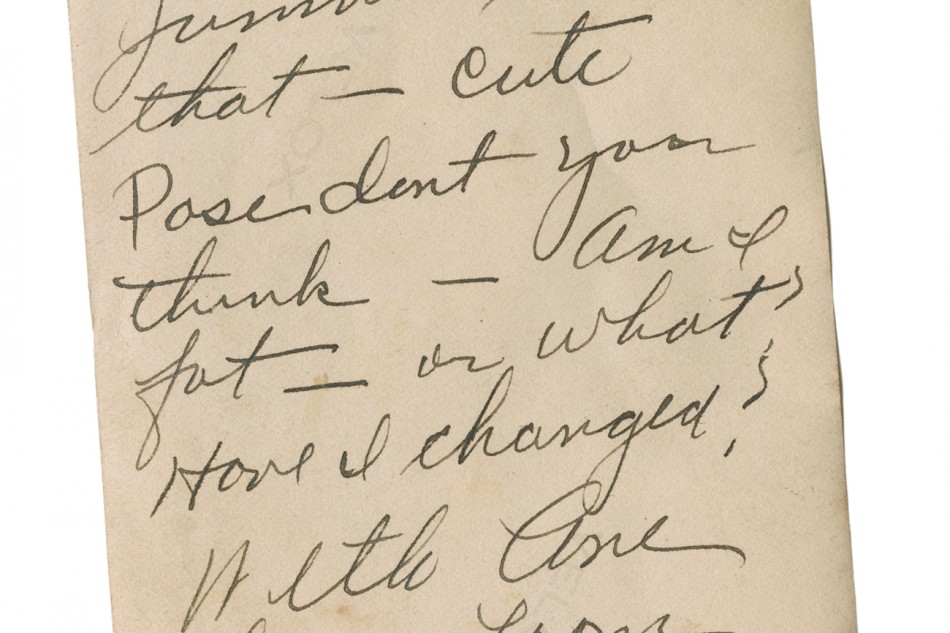 that — cute
Pose dont you
think — Am I
fat — or what?
Have I changed?
With One